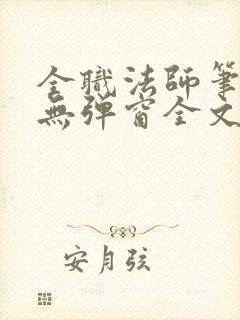 全職法師筆
無彈窗全文
安月弦